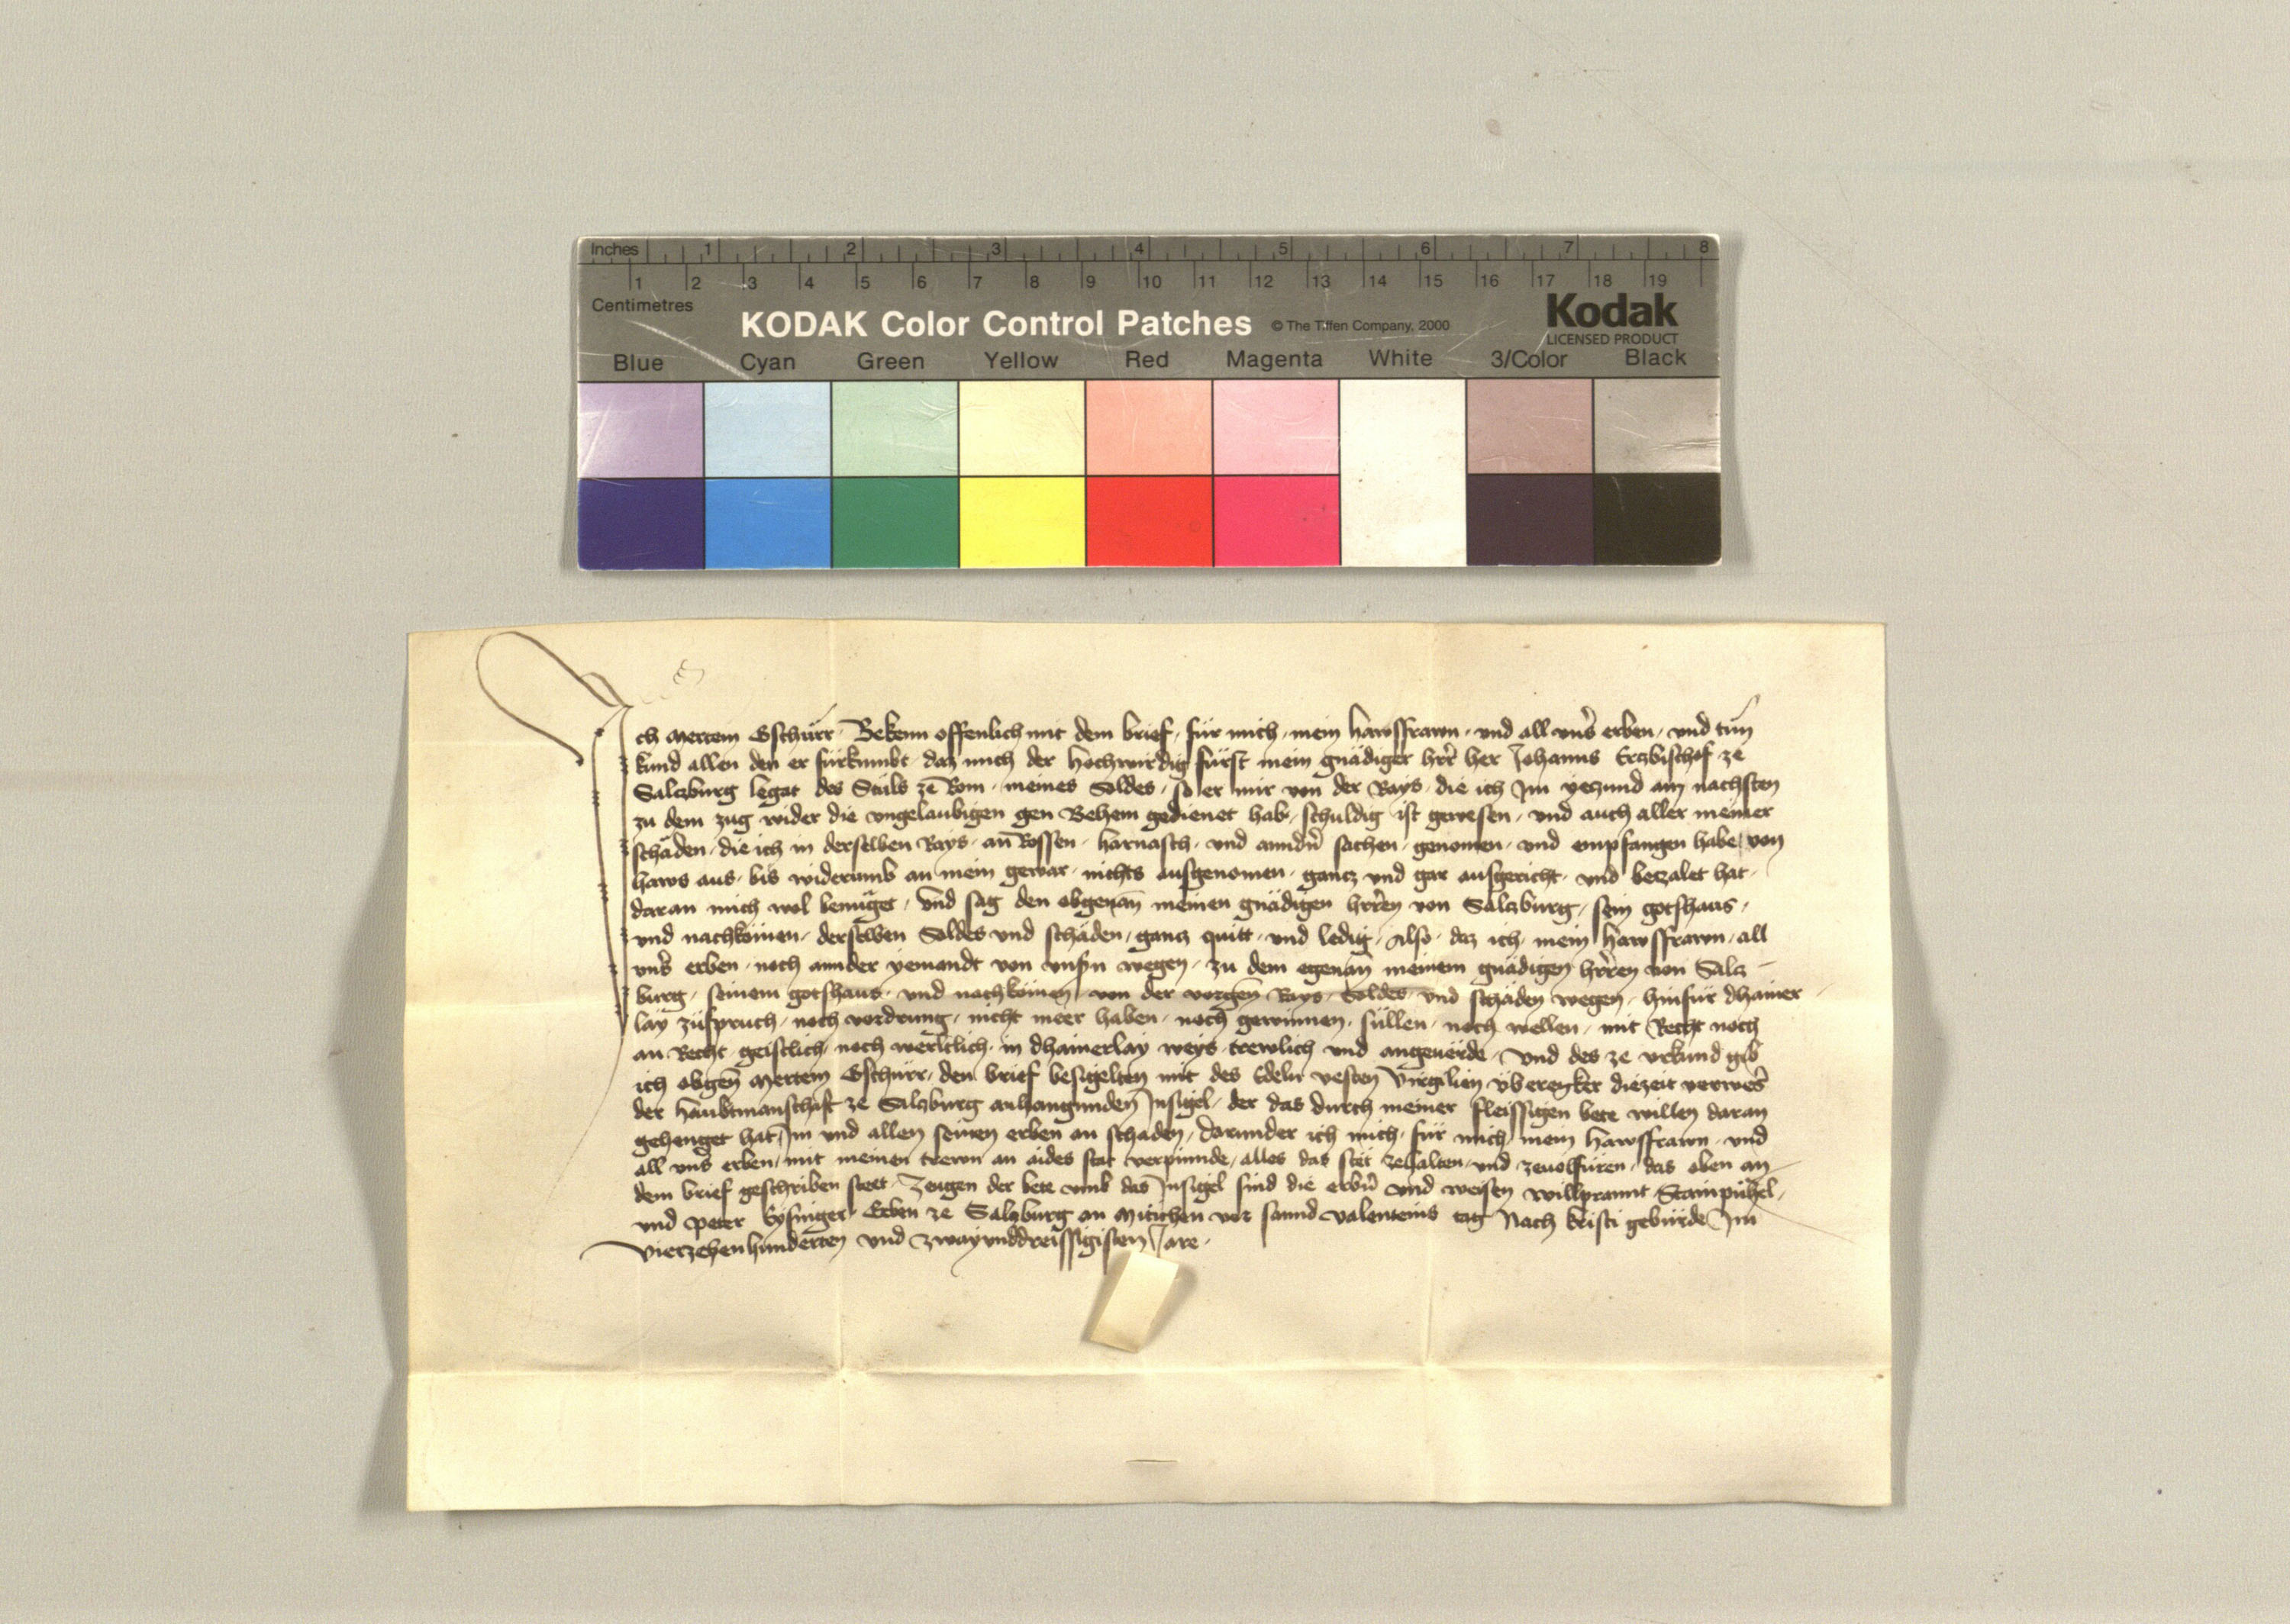 Inches 1 2 3 4 5 6 7 8
1 2 3 4 5 6 7 8 9 10 11 12 13 14 15 16 17 18 19
Centimetres
KODAK Color Control Patches © The Tiffen Company, 2000 Kodak
LICENSED PRODUCT
Blue Cyan Green Yellow Red Magenta White 3/Color Black
Ich Mertein Gschürr Bekenn offenlich mit dem brief, für mich, mein hawsfrawn, und all unsr erben, und tun
kund allen den er fürkumbt, daz mich der hochwirdig fürst mein gnädiger hrr her Johanns Erczbischof ze
Salczburg legat des Stuls ze Rom, meines Soldes, so er mir von der Rays, die ich Im yeczund am nachsten
zu dem zug wider die ungelaubigen gen Behem gedienet hab, schuldig ist gewesen, und auch aller meiner
schäden, die ich in derselben Rays, an Rossen, harnasch, und anndern sachen, genomen, und empfangen habe, von
haws aus, bis widerumb an mein gewar, nichts ausgenomen, gancz und gar ausgericht, und beczalet hat,
daran mich wol benüget, Und sag den obgenan meinen gnädigen hrren von Salczburg, sein gotshaus,
und nachkomen, derselben Soldes und schäden, gancz quitt, und ledig, Also, daz ich, mein hawsfrawn, all
unsr erben, noch annder yemandt von unsern wegen, zu dem egenan meinem gnädigen hrren von Salcz
burg, seinem gotshaus, und nachkomen, von der vorgen Rays, Soldes, und schäden wegen, hinfür dhainer
lay züspruch, noch vordrung, nicht meer haben, noch gewinnen, süllen, noch wellen, mit Recht noch
an Recht, geistlich, noch werltlich, in dhainerlay weys, trewlich und angeuerde, Und des ze urkund gib
ich obgen Mertein Gschürr, den brief besigelten mit des Edeln vesten Virgilien Überegker diezeit verwesr
der haubtmanschaft ze Salczburg anhangunden Insigel, der das durch meiner fleissigen bete willen daran
gehenget hat, Im und allen seinen erben an schaden, darunder ich mich, für mich, mein hawsfrawn, und
all uns erben, mit meinen trewn an aides stat verpinnde, alles das stet zehalten, und zeuolfüren, das oben an
dem brief geschriben steet, Zeugen der bete umb das Insigel sind die erbn und weisen willprannt, Stainpühel,
und Peter Geben ze Salczburg an Mitichen vor sannd Valenteins tag Nach kristi gebürde Im
Vierzehenhunderten und zwayunddreissigisten Jare.